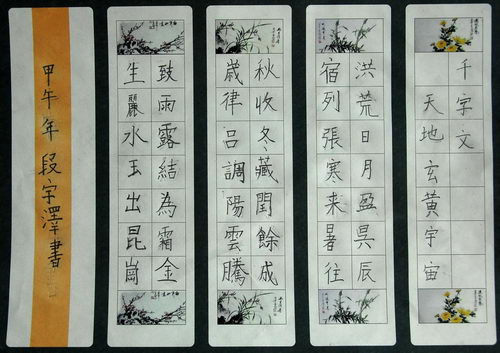 千字文
天地玄黃宇宙
洪荒日月盈昃辰
宿列張寒来暑往
秋收冬藏閏餘成
歲律呂調陽雲騰
致雨露結為霜金
生麗水玉出昆崗
甲午年段宇澤書